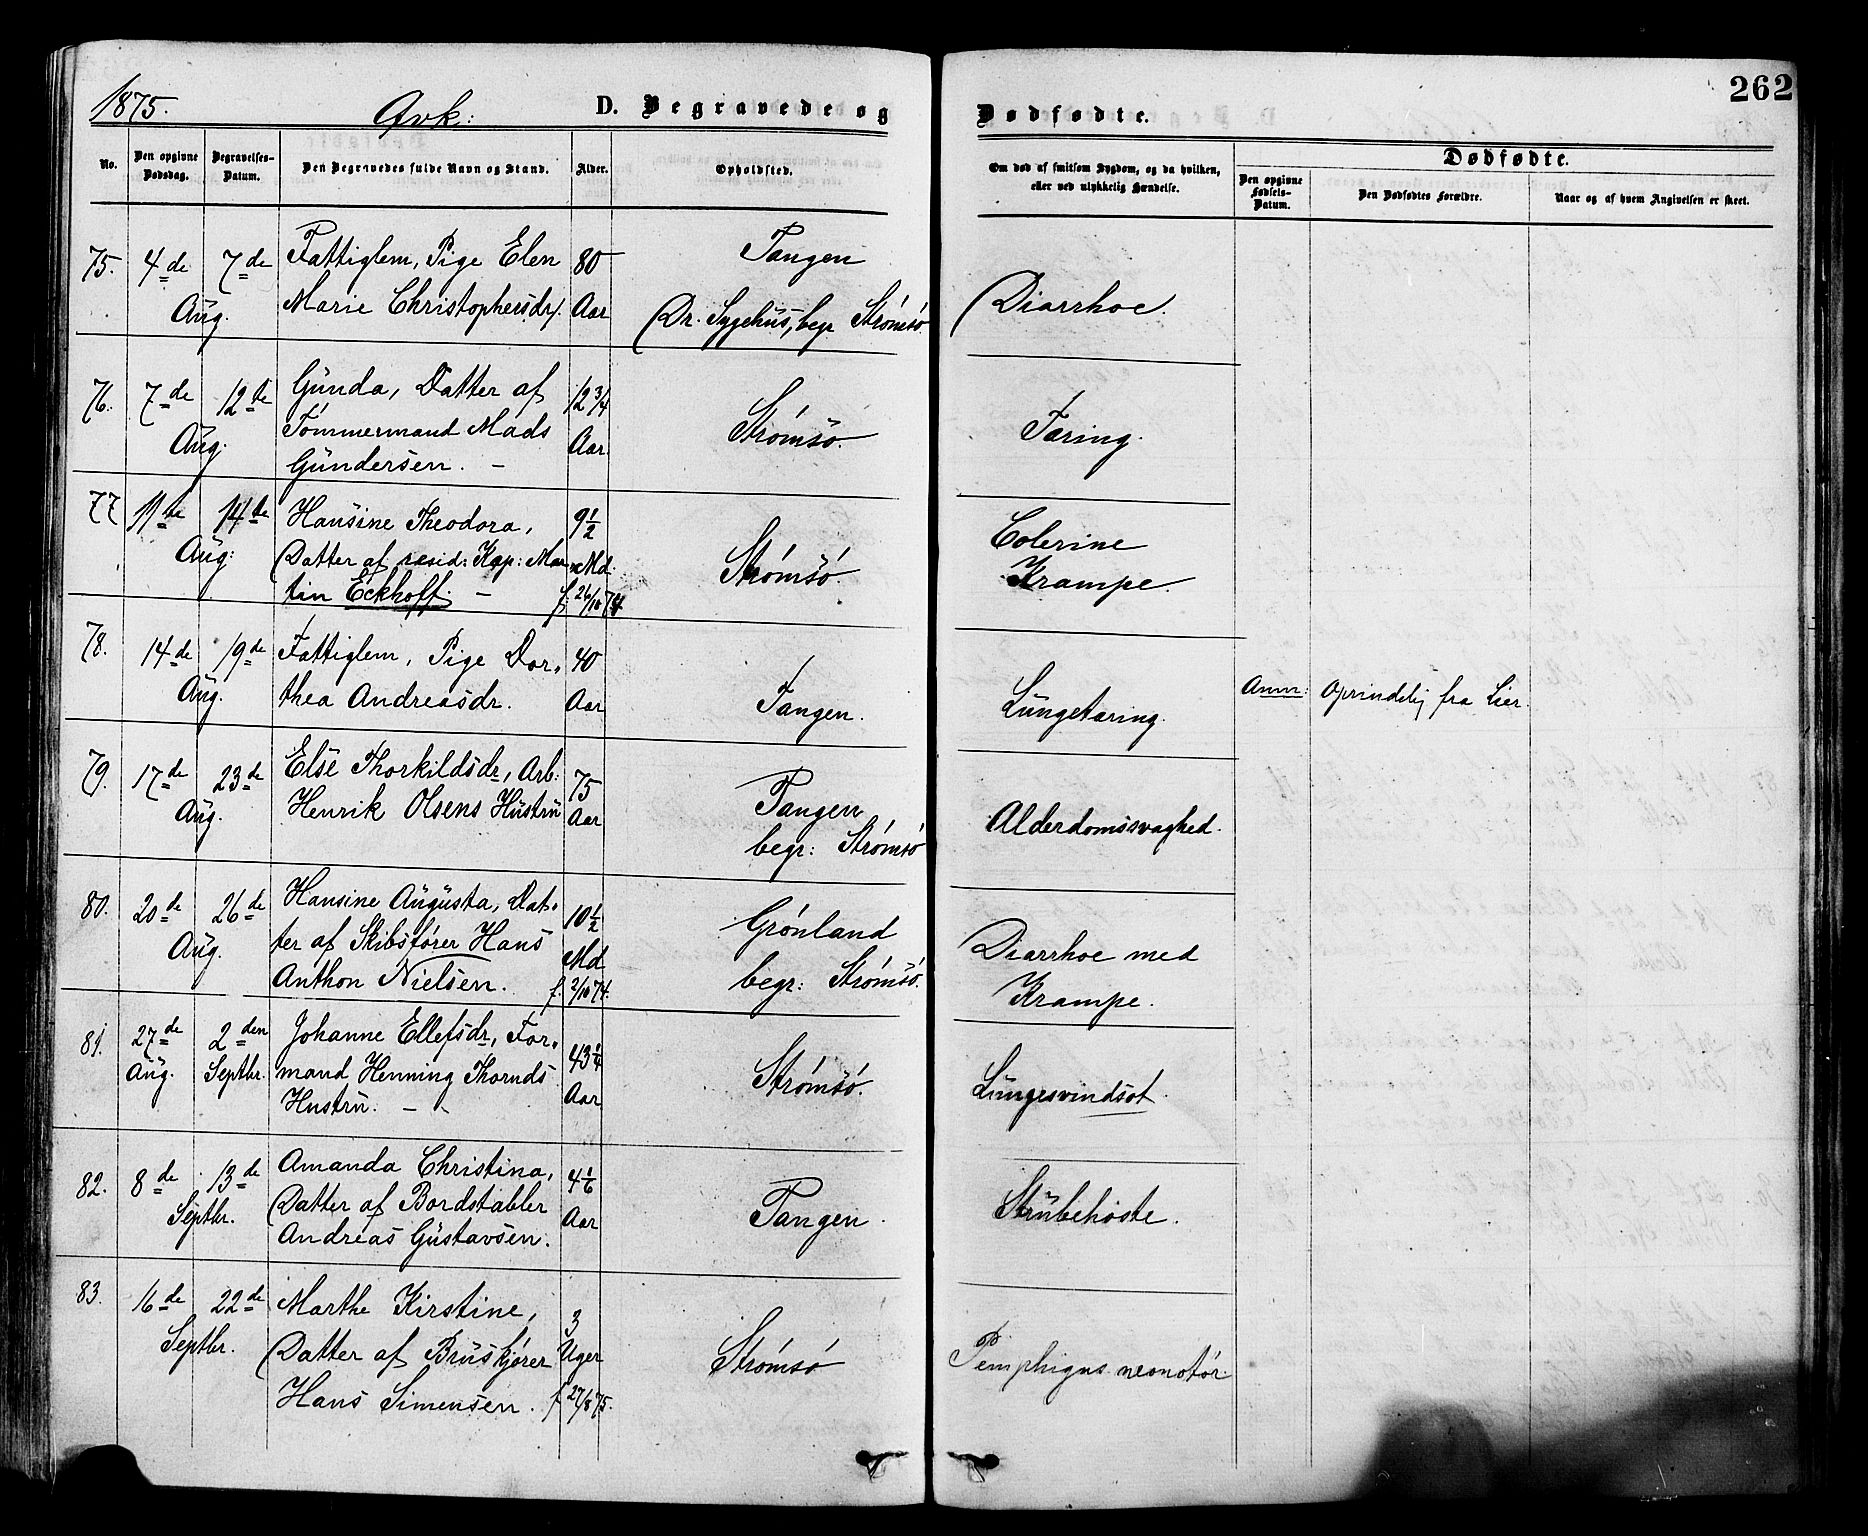 262
1875. Qvk: D. Begravede og Dødfødte.
No. Den opgivne Dødsdag. Begravelses-Datum. Den Begravedes fulde Navn og Stand. Alder. Opholdssted. Om død af smitsom Sygdom, og da hvilken, eller ved ulykkelig Hændelse. Dødfødte.
Den opgivne Fødsels-Datum. Den Dødfødtes Forældre. Naar og af hvem Angivelsen er skeet.
75. 4de 7de Fattiglem, Pige Elen 80 Tangen
Aug. Marie Christophersdr. Aar (Dr. Sygehus, begr. Strømsö Diarrhoe.
76. 7de 12te Gunda, Datter af 12 3/4
Aug. Tømmermand Mads Aar Strømsö Tæring.
Gundersen. -
77 11te 14te Hansine Theodora, 9 1/2 Colerine
Aug: Datter af resid: Kap: Mar- Md. Strømsö. Krampe.
tin Eckhoff. - f. 26/10 74
78. 14de 19de Fattiglem, Pige Dor- 40
Aug. thea Andreasdr. Aar Tangen. Lungetæring. Anm: Oprindelig fra Lier.
79. 17de 23de Else Thorkildsdr, Arb: 75 Tangen
Aug. Henrik Olsens Hustru Aar begr: Strømsö Alderdomssvaghed.
80. 20de 26de Hansine Augusta, Dat- 10 1/2 Grønland
Aug. ter af Skibsfører Hans Md begr: Strømsö. Diarrhoe med
Anthon Nielsen. f. 2/10 74. Krampe.
81. 27de 2den Johanne Ellefsdr, For- 43 1/4
Aug. Septbr. mand Henning Thornds Aar Strømsö. Lungesvindsot.
Hustru. - -
82. 8de 13de Amanda Christina, 4 1/6
Septbr. Datter af Bordstabler Aar Tangen. Strubehoste.
Andreas Gustavsen.
83. 16de 22de Marthe Kirstine, 3
Septbr. Datter af Bruskjører Uger Strømsö Pemphigus neonatör
Hans Simensen. f. 27/8 75.